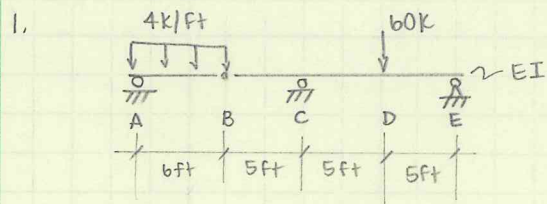 1.
4k/ft
60k
EI
A B C D E
6ft 5ft 5ft 5ft